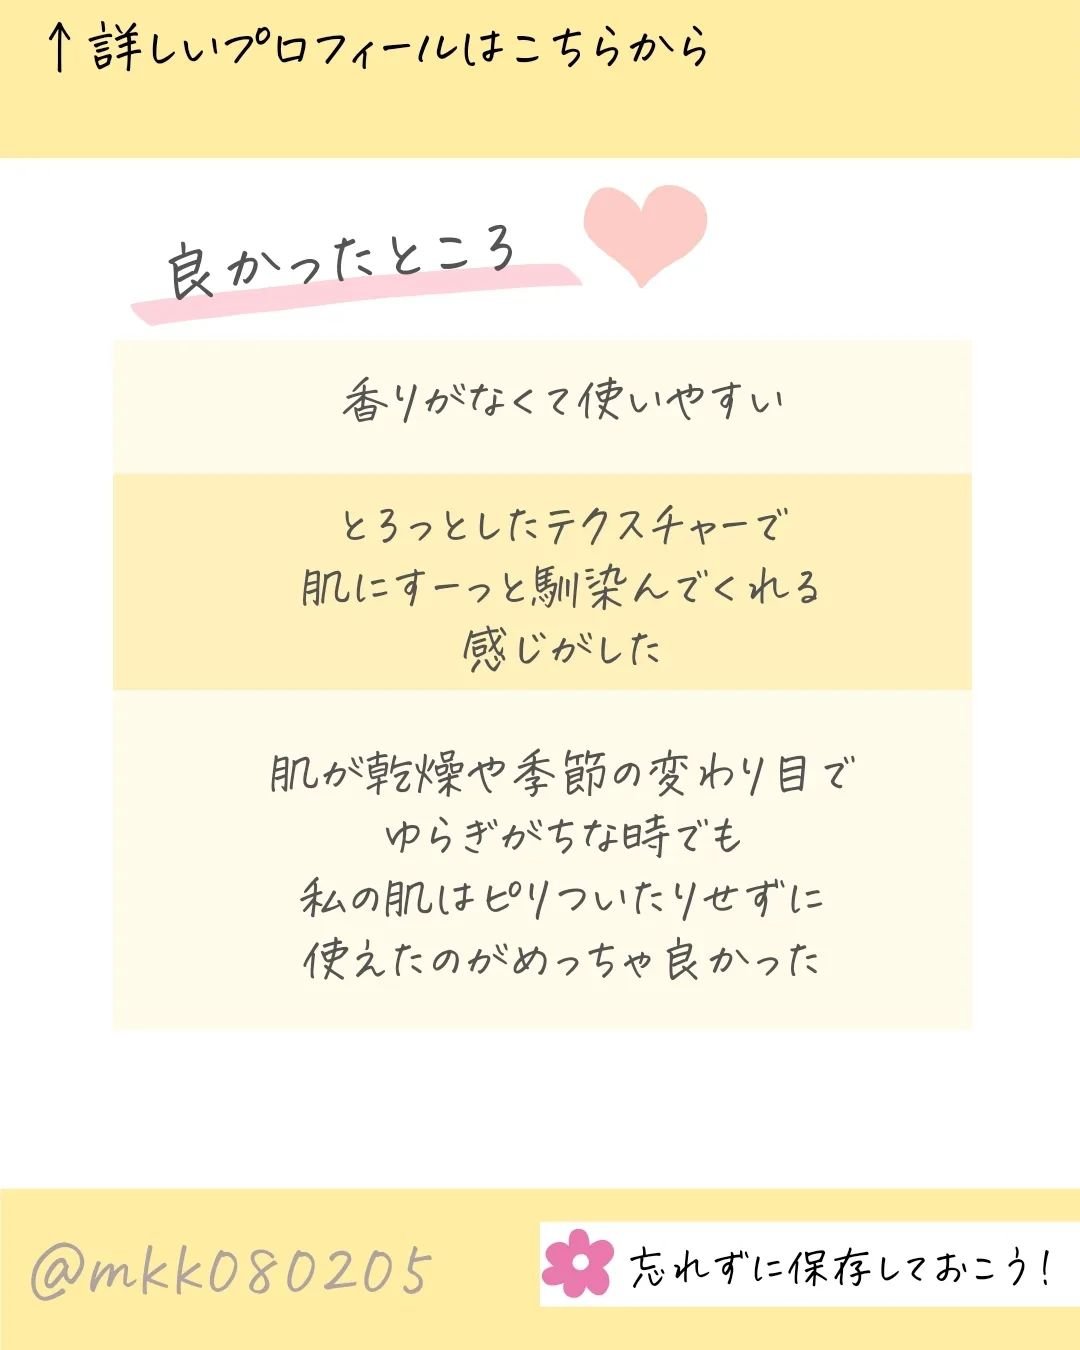 ↑詳しいプロフィールはこちらから
良かったところ
香りがなくて使いやすい
とろっとしたテクスチャーで
肌にすーっと馴染んでくれる
感じがした
肌が乾燥や季節の変わり目で
ゆらぎがちな時でも
私の肌はピリついたりせずに
使えたのがめっちゃ良かった
@mkk080205
忘れずに保存しておこう!